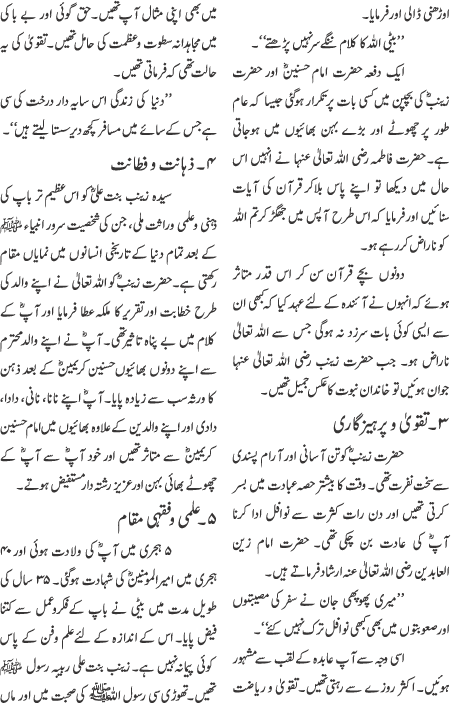 اوڑھنی ڈالی اور فرمایا۔
’’بیٹی اللہ کا کلام ننگے سر نہیں پڑھتے‘‘۔
ایک دفعہ حضرت امام حسنینؓ اور حضرت
زینبؓ کی بچپن میں کسی بات پر تکرار ہوگئی جیسا کہ عام
طور پر چھوٹے اور بڑے بہن بھائیوں میں ہو جاتی
ہے۔ حضرت فاطمہ رضی اللہ تعالیٰ عنہا نے انہیں اس
حال میں دیکھا تو اپنے پاس بلا کر قرآن کی آیات
سنائیں اور فرمایا کہ اس طرح آپس میں جھگڑ کر تم اللہ
کو ناراض کر رہے ہو۔
دونوں بچے قرآن سن کر اس قدر متاثر
ہوئے کہ انہوں نے آئندہ کے لئے عہد کیا کہ کبھی ان
سے ایسی کوئی بات سرزد نہ ہوگی جس سے اللہ تعالیٰ
ناراض ہو۔ جب حضرت زینب رضی اللہ تعالیٰ عنہا
جوان ہوئیں تو خاندان نبوت کا عکس جمیل تھیں۔
۳۔ تقویٰ و پرہیزگاری
حضرت زینبؓ کو تن آسانی اور آرام پسندی
سے سخت نفرت تھی۔ وقت کا بیشتر حصہ عبادت میں بسر
کرتی تھیں اور دن رات کثرت سے نوافل ادا کرنا
آپؓ کی عادت بن چکی تھی۔ حضرت امام زین
العابدین رضی اللہ تعالیٰ عنہ ارشاد فرماتے ہیں۔
’’میری پھوپھی جان نے سفر کی مصیبتوں
اور صعوبتوں میں بھی کبھی نوافل ترک نہیں کئے‘‘۔
اسی وجہ سے آپ عابدہ کے لقب سے مشہور
ہوئیں۔ اکثر روزے سے رہتی تھیں۔ تقویٰ و ریاضت
میں بھی اپنی مثال آپ تھیں۔ حق گوئی اور بے باکی
میں مجاہدانہ سطوت و عظمت کی حامل تھیں۔ تقویٰ کی یہ
حالت تھی کہ فرماتی تھیں۔
’’دنیا کی زندگی اس سایہ دار درخت کی سی
ہے جس کے سائے میں مسافر کچھ دیر سستا لیتے ہیں‘‘۔
۴۔ ذہانت و فطانت
سیدہ زینب بنت علیؓ کو اس عظیم تر باپ کی
ذہنی و علمی وراثت ملی، جن کی شخصیت سرور انبیاء ﷺ
کے بعد تمام دنیا کے تاریخی انسانوں میں نمایاں مقام
رکھتی ہے۔ حضرت زینبؓ کو اللہ تعالیٰ نے اپنے والد کی
طرح خطابت اور تقریر کا ملکہ عطا فرمایا اور آپؓ کے
کلام میں بے پناہ تاثیر تھی۔ آپؓ نے اپنے والد محترم
سے اپنے دونوں بھائیوں حسنین کریمینؓ کے بعد ذہن
کا ورثہ سب سے زیادہ پایا۔ آپؓ اپنے نانا، نانی، دادا،
دادی اور اپنے والدین کے علاوہ بھائیوں میں امام حسنین
کریمینؓ سے متاثر تھیں اور خود آپؓ سے آپؓ کے
چھوٹے بھائی بہن اور عزیز رشتہ دار مستفیض ہوتے۔
۵۔ علمی و فقہی مقام
۵ ہجری میں آپؓ کی ولادت ہوئی اور ۴۰
ہجری میں امیرالمومنینؓ کی شہادت ہوگئی۔ ۳۵ سال کی
طویل مدت میں بیٹی نے باپ کے فکر و عمل سے کتنا
فیض پایا۔ اس کے اندازہ کے لئے علم و فن کے پاس
کوئی پیمانہ نہیں ہے۔ زینب بنت علی ربیبہ رسول ﷺ
تھیں۔ تھوڑی سی رسول اللہ ﷺ کی صحبت میں اور ماں